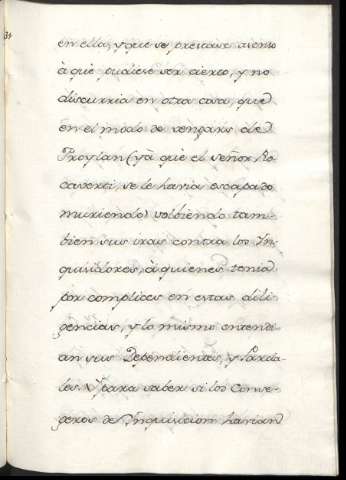 en ella, y que se prestase asenso
à què pudiese ser cierto, y no
discurria en otra cosa, que
en el modo de vengarse de
Froylan (yà què el señor Ro
caverti, se le havia escapado
muriendo) volbiendo tam-
bien sus iras contra los In-
quisidores, à quienes tenia
por complices en estas dili-
gencias, y lo mismo entendi-
an sus Dependientes, y Parcia-
les. Y para saber si los Conse-
geros de Inquisicion havian